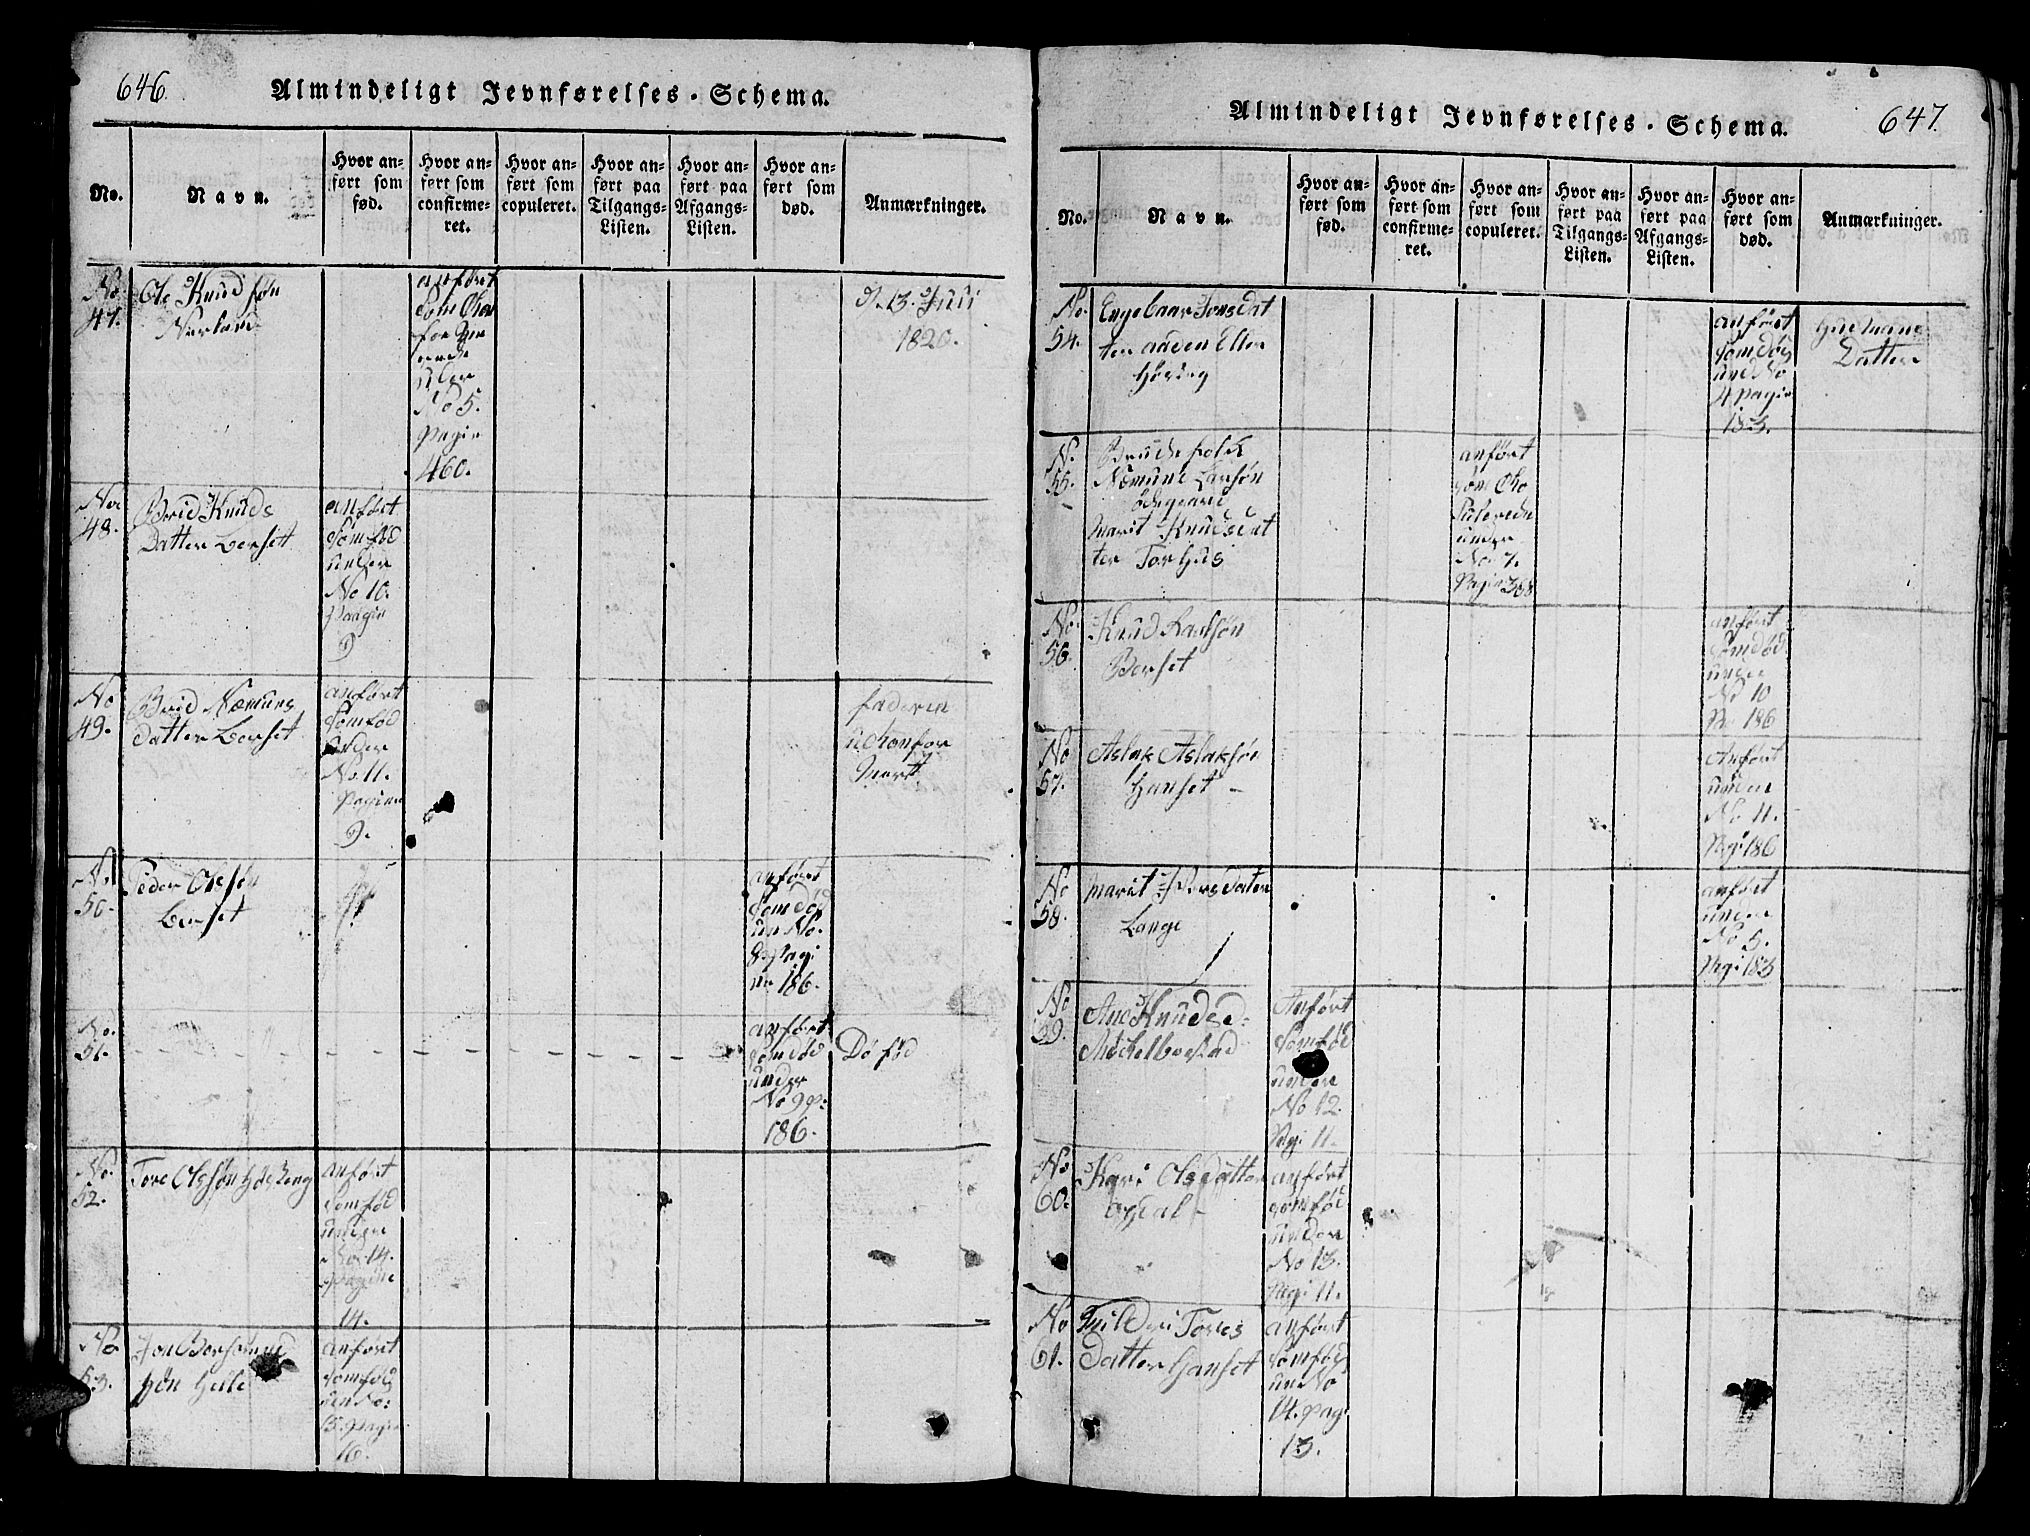 646.
Almindeligt Jevnførelses-Schema.
No.
Navn.
Hvor an-
ført som
fød.
Hvor an-
ført som
confirme-
ret.
Hvor an-
ført som
copuleret.
Hvor an-
ført paa
Tilgangs-
Listen.
Hvor an-
ført paa
Afgangs-
Listen.
Hvor an-
ført som
død.
Anmærkninger.
No
47.
Ole Knudsøn
anført
under
No 5.
pagin
460.
d. 13. Juli
1820.
No
48.
Brid Knuds
Datter Berset
anført
som fød
under
No 10.
Paagin
9
No
49.
Brid Næmuns
datter Berset
anført
som fød
under
No. 11.
Pagina
9.
faderen
No
50.
Peder Olesøn
Berset
anført
som død
un No.
8. Pagi
na 186.
No.
51.
anført
som død
under
No 9 p:
186.
Dø fød
No.
52.
Tore Olssøn
anført
som fød
under
No. 14.
pagina
14.
No
53.
Jon
søn Helle
anført
som fød
un No:
15. pagin
16.
Almindeligt Jevnførelses-Schema.
647.
No.
Navn.
Hvor an-
ført som
fød.
Hvor an-
ført som
confirme-
ret.
Hvor an-
ført som
copuleret.
Hvor an-
ført paa
Tilgangs-
Listen.
Hvor an-
ført paa
Afgangs-
Listen.
Hvor an-
ført som
død.
Anmærkninger.
No.
54.
Engebaar Jonsdat
ter
anført
som død
und No
4 pagin
183.
Datter
N.
55.
Brude folk
Næmund Larsøn
Ødegaard
Marit Knudsdat
ter Torhus
anført
som Co
pulerede
under
No. 7.
Pagin 368
No
56.
Knud
Berset
anført
som død
under
No 10
Pa 186
No
57.
Aslak Aslaksøn
Hanset
Anført
under
No 11.
Pagi 186
No
58.
Marit Iversdater
Lange
anført
under
No 5.
Pagi 183
No
59.
Ane Knudsd:
Mechelborstad
Anført
som fød
under
No 12.
Pagi 11.
No
60.
Kari Olsdatter
Opdal
anført
som fød
under
No 13.
Pagi 11.
No
61.
Torres
Datter Hanset
anført
som fød
un No
14. pag:
13.